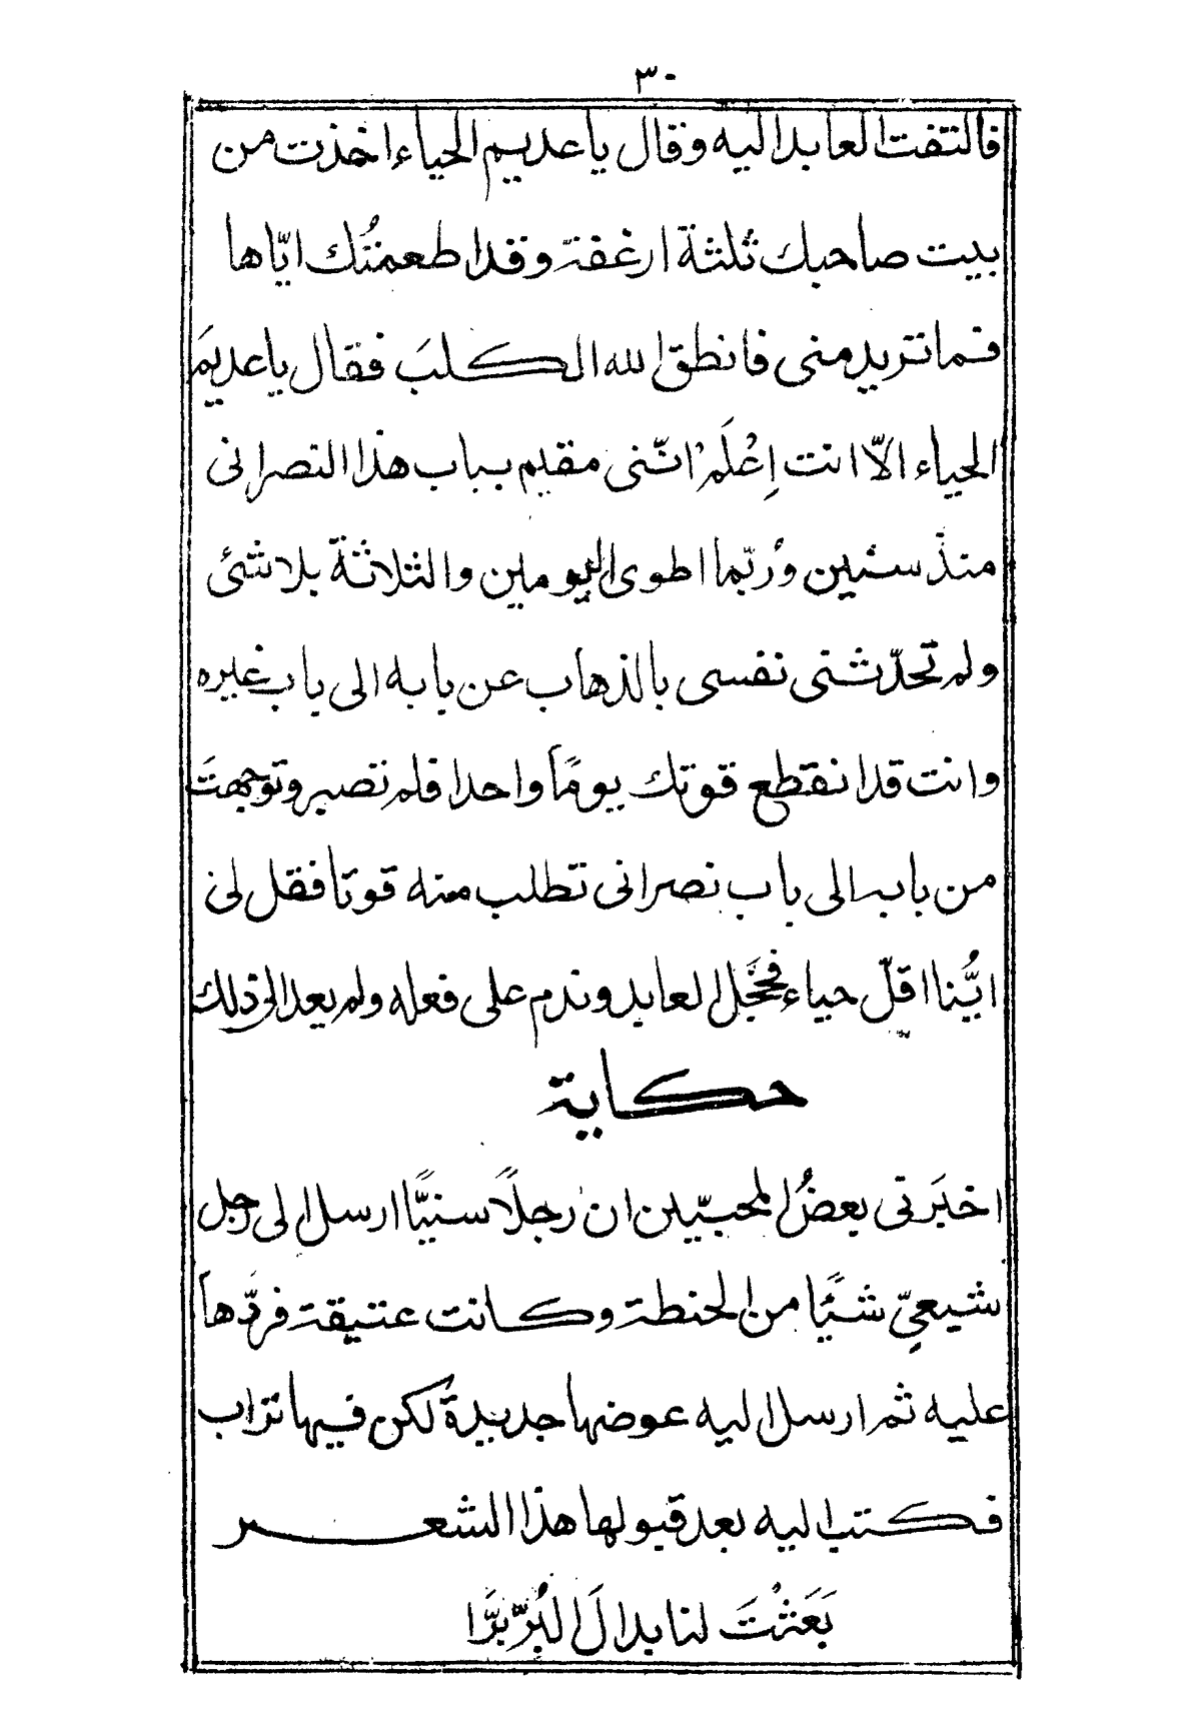 ٣٠
فالتفت العابد اليه وقال يا عديم الحياء اخذت من
بيت صاحبك ثلثة ارغفة وقد اطعمتُك ايّاها
فما تريد منى فانطق الله الكلبَ فقال يا عديمَ
الحياء الاّ انت اِعْلَمْ انّنى مقيم بباب هذا النصرانى
منذ سنين ورُبّما اطوى اليومين والثلاثة بلا شئ
ولم تحدّثنى نفسى بالذهاب عن بابه الى باب غيره
وانت قد انقطع قوتك يومًا واحدا فلم تصبر وتوجهتَ
من بابه الى باب نصرانى تطلب منه قوتا فقل لى
ايُّنا اقلّ حياء فخَجَل العابد وندم على فعله ولم يعد الى ذلك
حكاية
اخبَرنى بعضُ المحبّين ان رجلاً سنيًّا ارسل الى رجل
شيعىّ شئًا من الحنطة وكانت عتيقة فردَّها
عليه ثم ارسل اليه عوضها جديدةً لكن فيها تراب
فكتب اليه بعد قبولها هذا الشعر
بَعَثْتَ لنا بدالَ البُرِّ بُرًّا